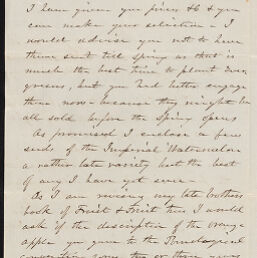 I have given you prices &c & you
can make your selection - I
would advise you not to have
them sent till Spring as that is
much the best time to plant ever
greens, but you had better engage
them now - because they might be
all sold before the Spring opens
As promised I enclose a few
seeds of the Imperial Watermelon
a rather late variety but the best
of any I have yet seen
As I am revising my late brothers
book of Fruit & Fruit trees I would
ask if the description of the orange
apple you gave to the Pomological
convention some two or three years